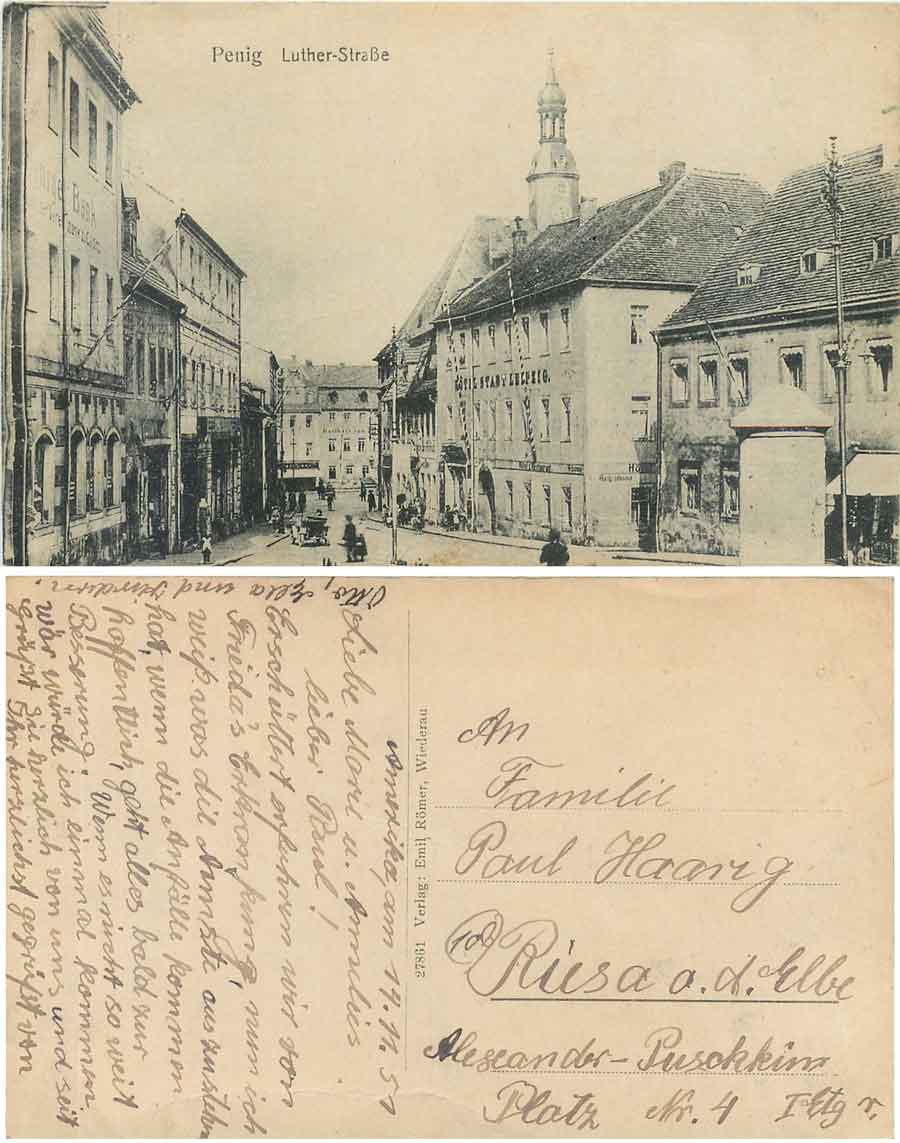 Penig Luther-Straße
Bank
HOTEL STADT LEIPZIG.
27861 Verlag: Emil Römer, Wiederau
Amerika, am 14. 11. 51
Liebe Marie u. Annelies
lieber Paul!
Erschüttert erfuhren wir von
Frieda's Erkrankung, nun ich
weiß was die Armste auszustehn
hat, wenn die Anfälle kommen
hoffentlich geht alles bald zur
Besserung. Wenn es nicht so weit
wär würde ich einmal kommen
Seid
gegrüßt Sie herzlich von uns und
Ihr herzlichst gegrüßt von
Otto, Ella und Kindern.
An
Familie
Paul Haarig
(10) Riesa a. d. Elbe
Alexander-Puschkin
Platz Nr. 4 I Etg r.